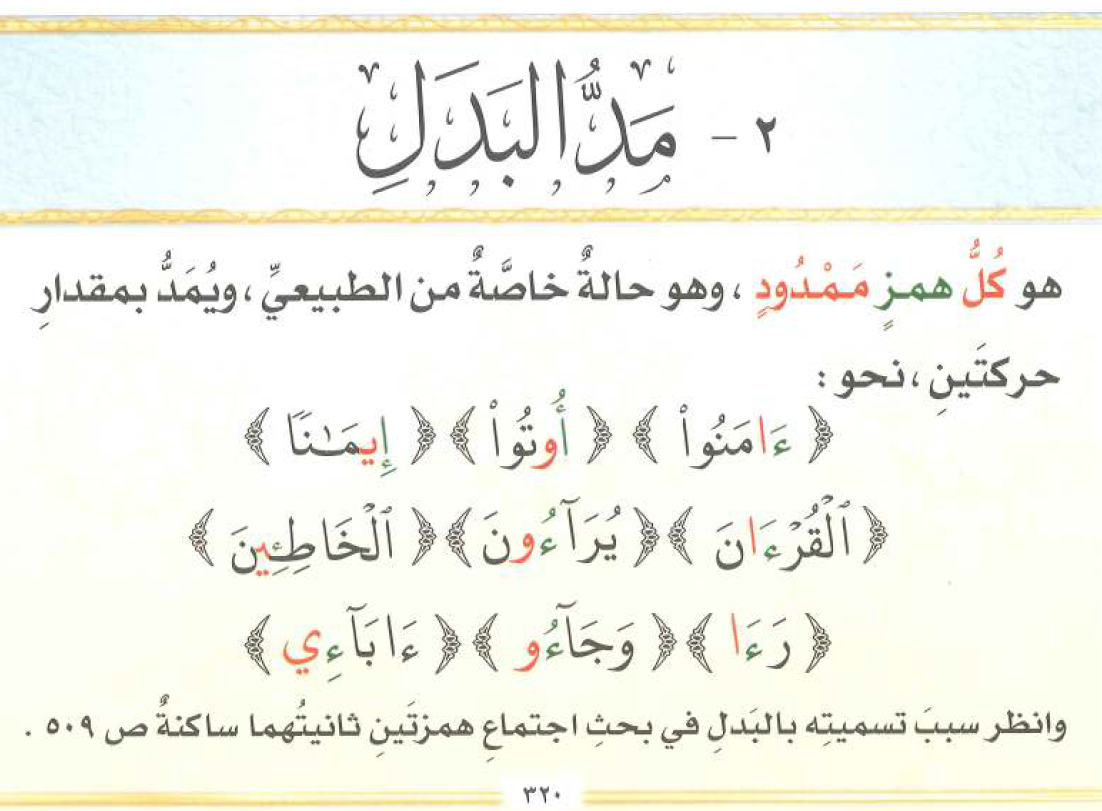 ٢ - مَدُّ البَدَلِ
هو كُلُّ همـزٍ مَـمْـدُودٍ ، وهو حالةٌ خاصَّةٌ من الطبيعيِّ ، ويُمَدُّ بمقدارِ
حركتَينِ ، نحو :
﴿ ءَامَنُواْ ﴾ ﴿ أُوتُواْ ﴾ ﴿ إِيمَـٰنًا ﴾
﴿ ٱلْقُرْءَانَ ﴾ ﴿ يُرَآءُونَ ﴾ ﴿ ٱلْخَاطِـِٔينَ ﴾
﴿ رَءَا ﴾ ﴿ وَجَآءُو ﴾ ﴿ ءَابَآءِي ﴾
وانظر سببَ تسميتِه بالبَدلِ في بحثِ اجتماعِ همزتَينِ ثانيتُهما ساكنةٌ ص ٥٠٩ .
٣٢٠